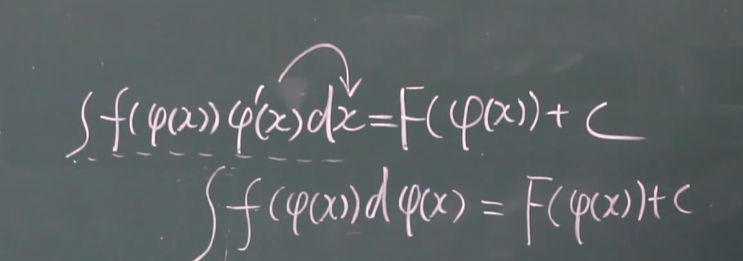 ∫f(φ(x))φ'(x)dx=F(φ(x))+C
∫f(φ(x))dφ(x)=F(φ(x))+C